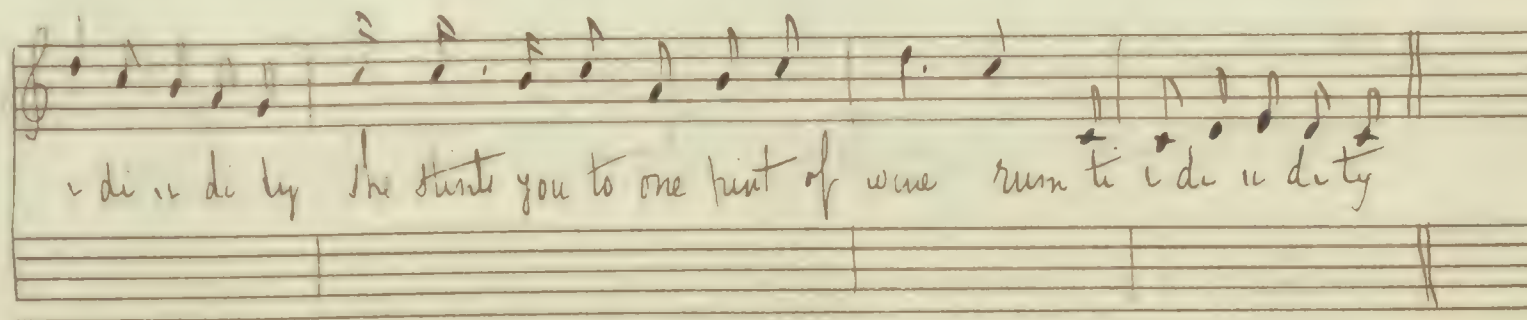 i di ii di ty she stints you to one pint of wine rum ti i di ii di ty